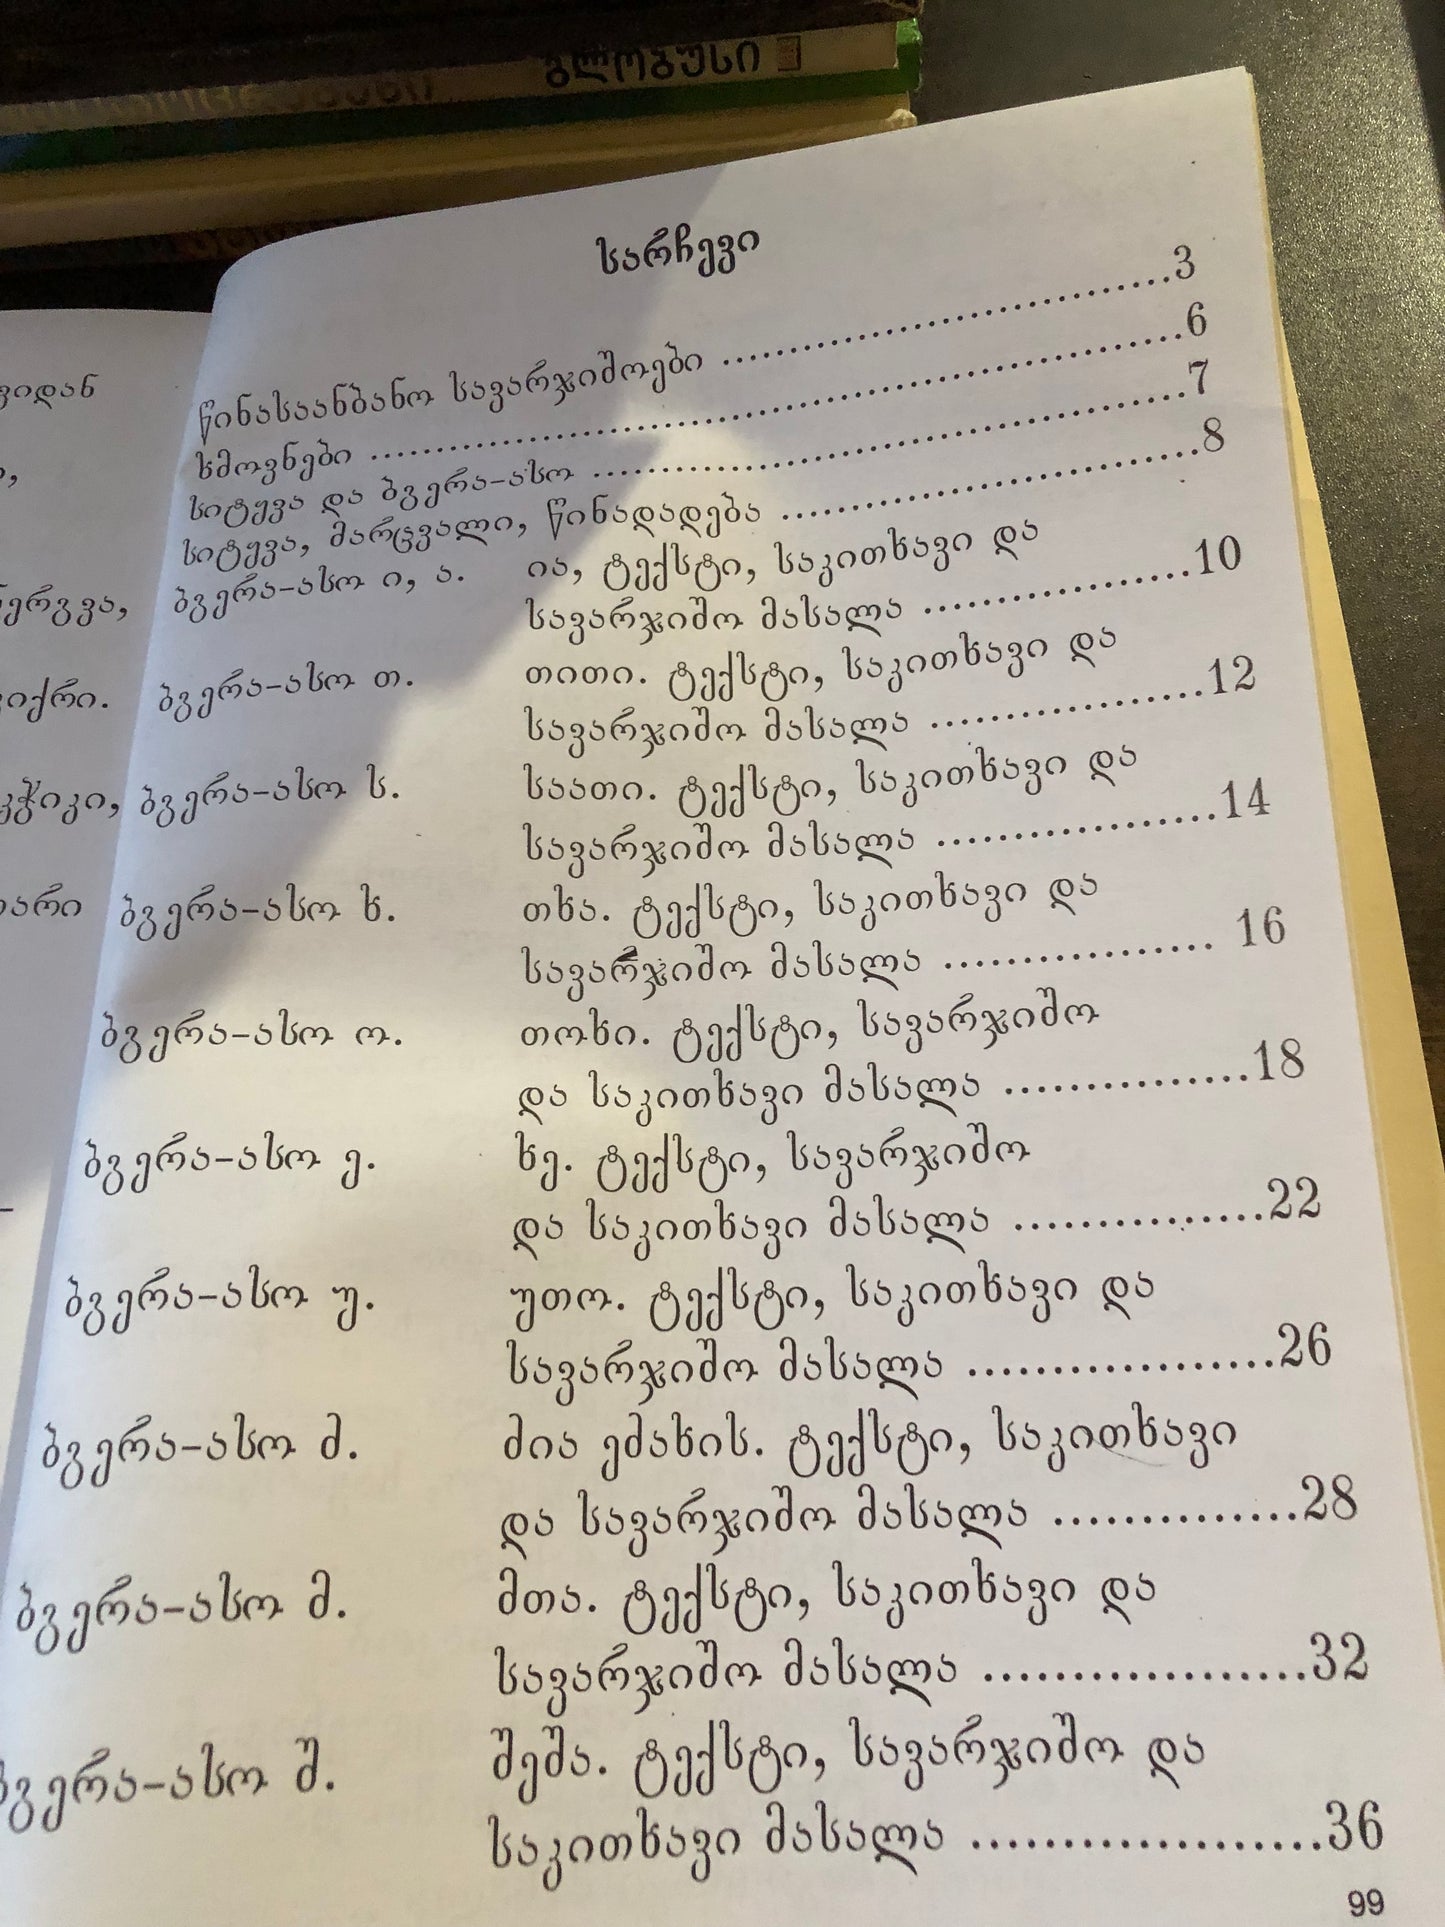 გლობუსი
სარჩევი
წინასაანბანო სავარჯიშოები ........................................3
ხმოვნები ........................................................6
სიტყვა და ბგერა-ასო ........................................7
სიტყვა, მარცვალი, წინადადება ..............................8
ბგერა-ასო ი, ა. ია, ტექსტი, საკითხავი და
სავარჯიშო მასალა ...................10
ბგერა-ასო თ. თითი. ტექსტი, საკითხავი და
სავარჯიშო მასალა ...................12
ბგერა-ასო ს. საათი. ტექსტი, საკითხავი და
სავარჯიშო მასალა ...................14
ბგერა-ასო ხ. თხა. ტექსტი, საკითხავი და
სავარჯიშო მასალა .................. 16
ბგერა-ასო ო. თოხი. ტექსტი, სავარჯიშო
და საკითხავი მასალა ................18
ბგერა-ასო ე. ხე. ტექსტი, სავარჯიშო
და საკითხავი მასალა ................22
ბგერა-ასო უ. უთო. ტექსტი, საკითხავი და
სავარჯიშო მასალა ...................26
ბგერა-ასო მ. მია ემახის. ტექსტი, საკითხავი
და სავარჯიშო მასალა ...............28
ბგერა-ასო მ. მთა. ტექსტი, საკითხავი და
სავარჯიშო მასალა ...................32
ბგერა-ასო შ. შეშა. ტექსტი, სავარჯიშო და
საკითხავი მასალა ....................36
99